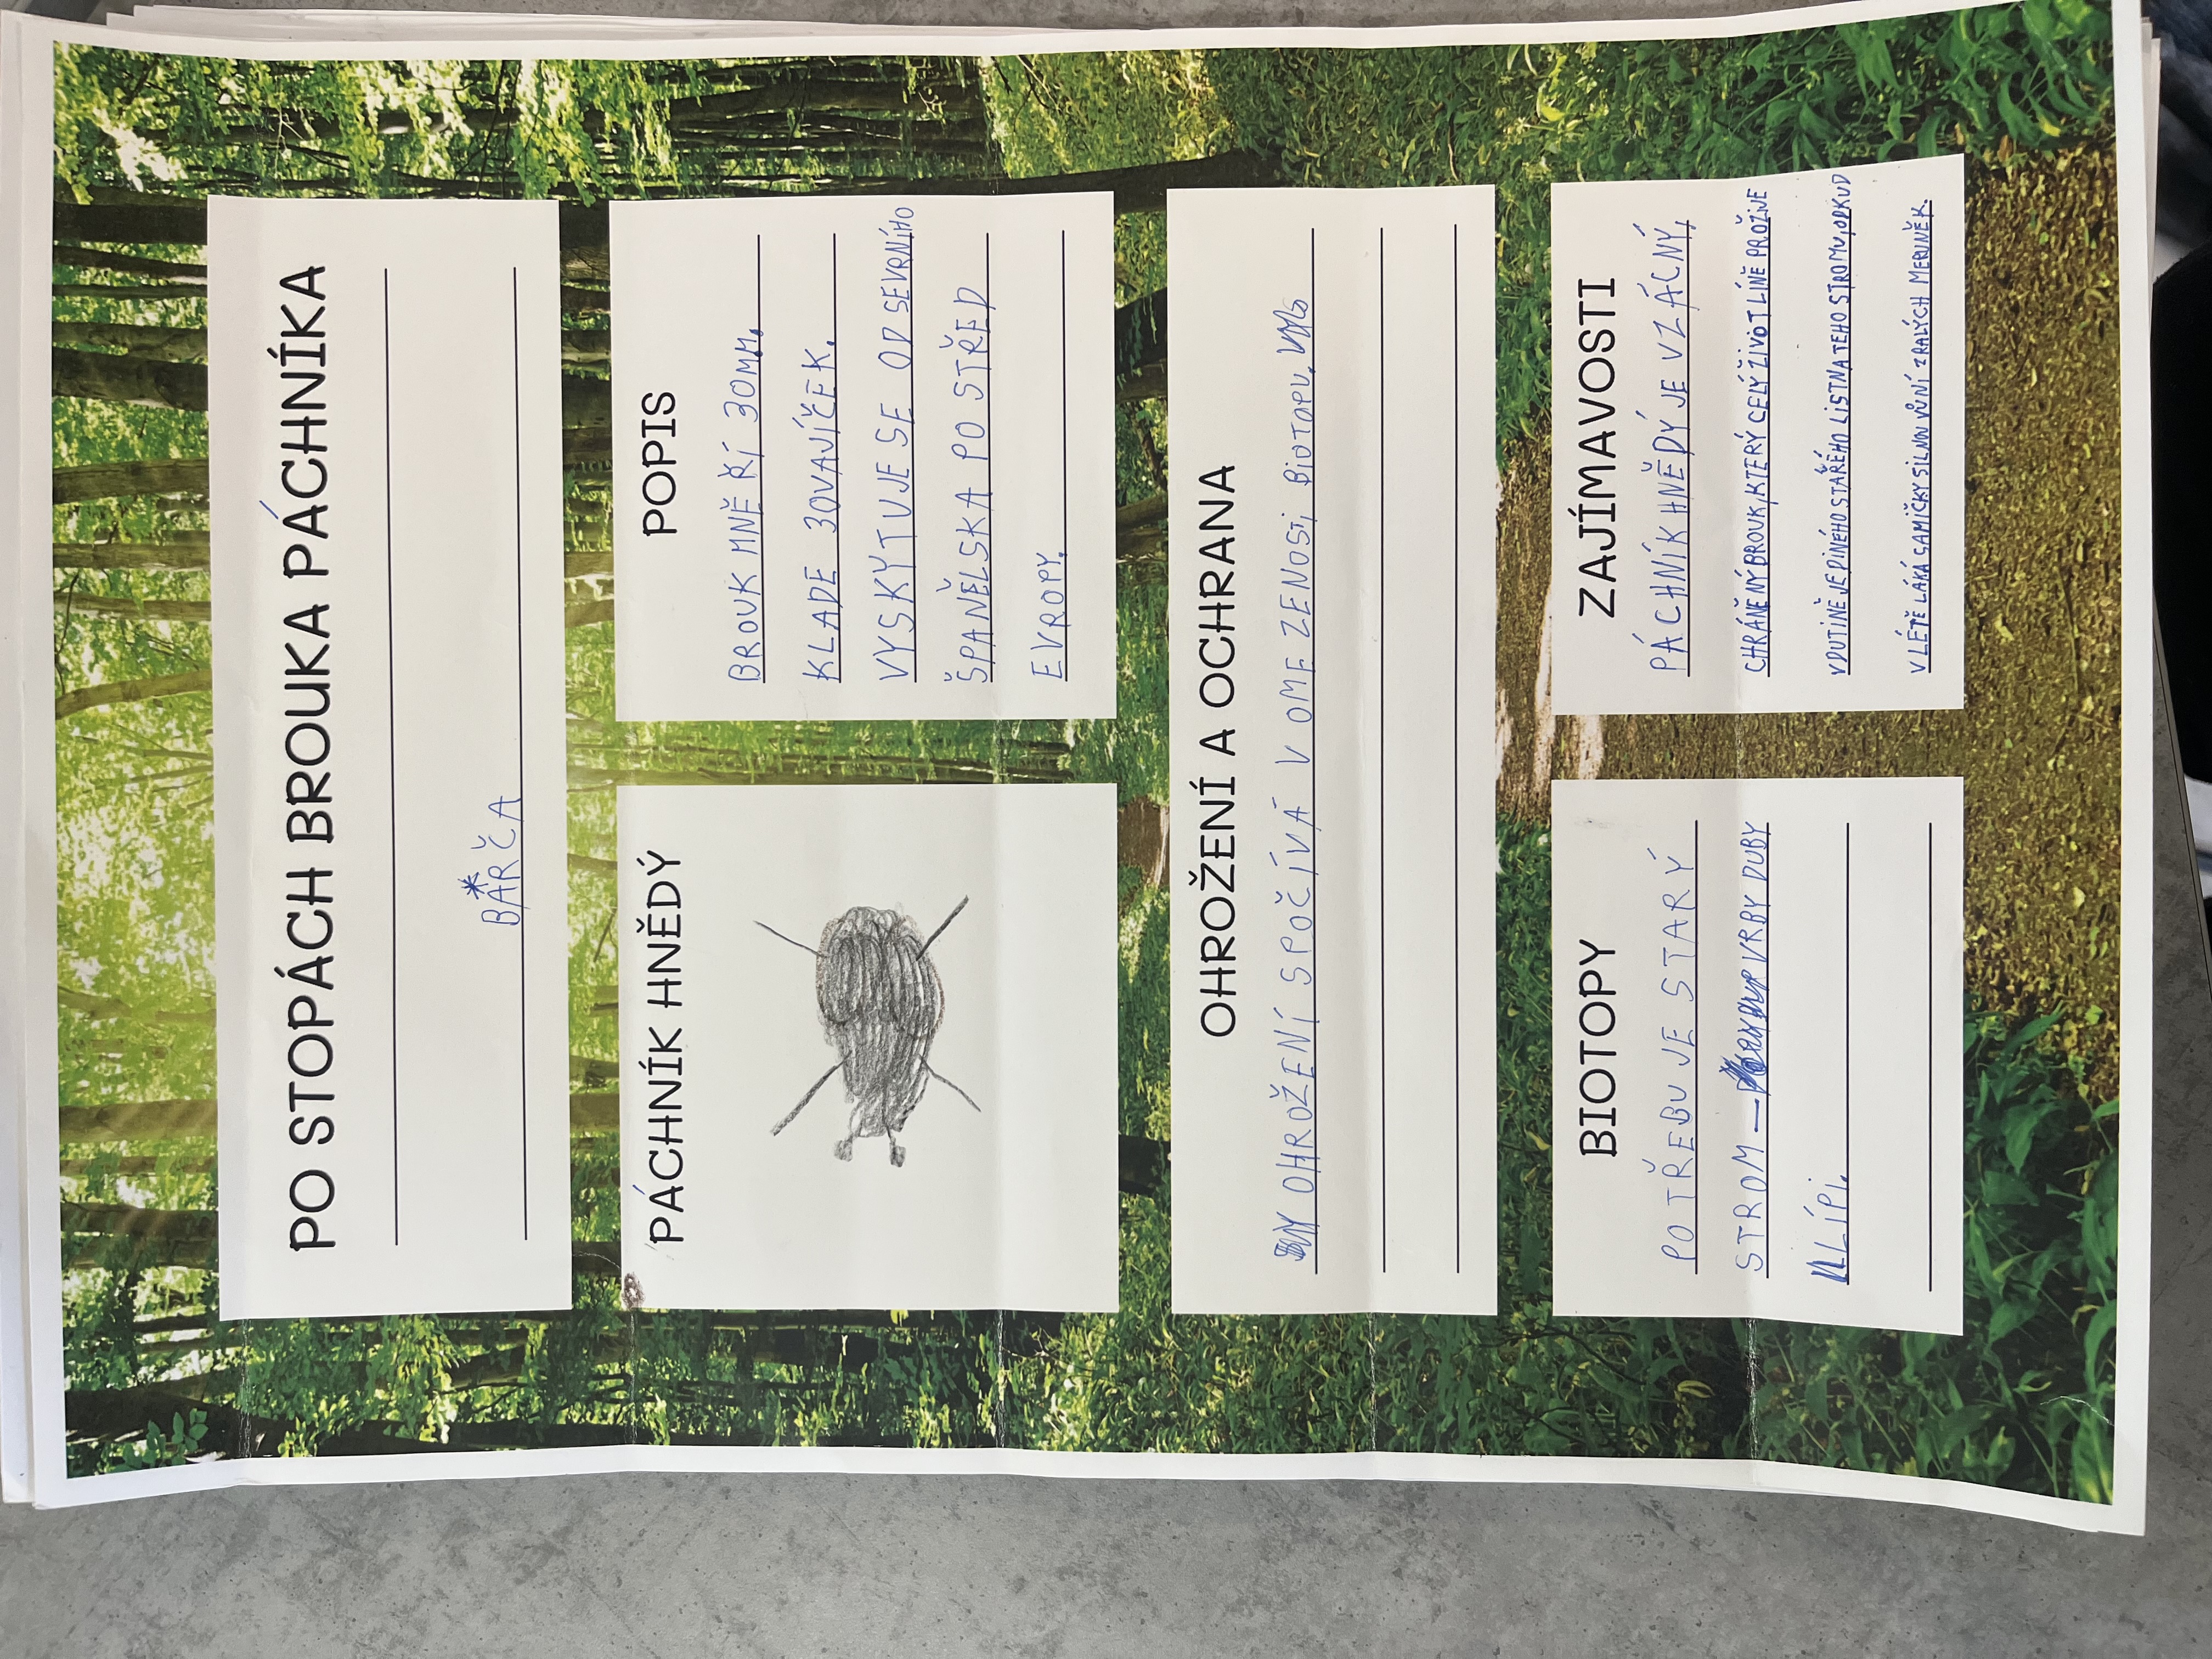 PO STOPÁCH BROUKA PÁCHNÍKA
BÁRČA
PÁCHNÍK HNĚDÝ
POPIS
BROUK MNĚŘÍ 30MM.
KLADE 30VAJÍČEK.
VYSKYTUJE SE OD SEVRNÍHO
ŠPANĚLSKA PO STŘED
EVROPY.
OHROŽENÍ A OCHRANA
OHROŽENÍ SPOČÍVÁ V OMEZENOSTI BIOTOPU.
BIOTOPY
POTŘEBUJE STARÝ
STROM — VRBY DUBY
LÍPI.
ZAJÍMAVOSTI
PÁCHNÍK HNĚDÝ JE VZÁCNÝ,
CHRÁNĚNÝ BROUK, KTERÝ CELÝ ŽIVOT LÍNĚ PROŽIJE
V DUTINĚ JEDINÉHO STARÉHO LISTNATEHO STROMU, ODKUD
V LÉTĚ LÁKÁ SAMIČKY SILNOU VŮNÍ ZRALÝCH MERUNĚK.